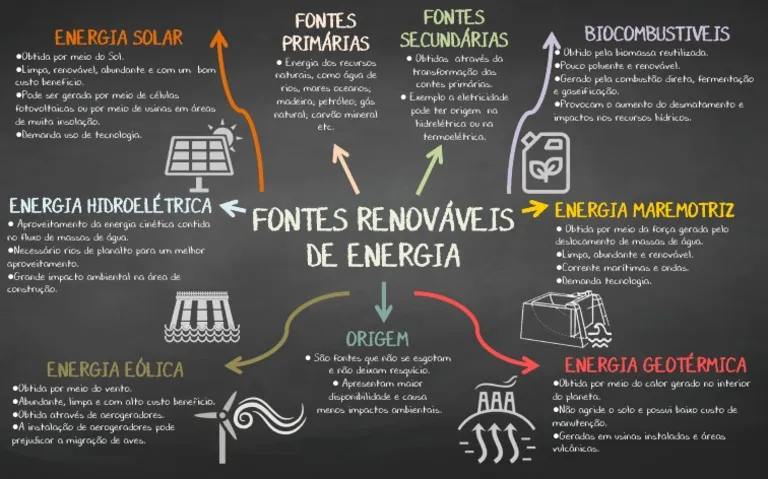 ENERGIA SOLAR
●Obtida por meio do Sol.
●Limpa, renovável, abundante e com um bom
custo beneficio.
●Pode ser gerada por meio de células
fotovoltaicas ou por meio de usinas em áreas
de muita insolação.
●Demanda uso de tecnologia.
FONTES
PRIMÁRIAS
● Energia dos recursos
naturais, como água de
rios, mares oceanos;
madeira; petróleo; gás
natural; carvão mineral
etc.
FONTES
SECUNDÁRIAS
● Obtidas através da
transformação das
contes primárias.
● Exemplo a eletricidade
pode ter origem na
hidrelétrica ou na
termoelétrica.
BIOCOMBUSTIVEIS
● Obtido pela biomassa reutilizada.
●Pouco poluente e renovável.
●Gerado pela combustão direta, fermentação
e gaseificação.
●Provocam o aumento do desmatamento e
impactos nos recursos hídricos.
ENERGIA HIDROELÉTRICA
● Aproveitamento da energia cinética contida
no fluxo de massas de água.
●Necessário rios de planalto para um melhor
aproveitamento.
●Grande impacto ambiental na área de
construção.
FONTES RENOVÁVEIS
DE ENERGIA
ENERGIA MAREMOTRIZ
● Obtida por meio da força gerada pelo
deslocamento de massas de água.
●Limpa, abundante e renovável.
●Corrente marítimas e ondas.
●Demanda tecnologia.
ENERGIA EÓLICA
●Obtida por meio do vento.
●Abundante, limpa e com alto custo beneficio.
●Obtida através de aerogeradores.
●A instalação de aerogeradores pode
prejudicar a migração de aves.
ORIGEM
● São fontes que não se esgotam
e não deixam resquício.
● Apresentam maior
disponibilidade e causa
menos impactos ambientais.
ENERGIA GEOTÉRMICA
●Obtida por meio do calor gerado no interior
do planeta.
●Não agride o solo e possui baixo custo de
manutenção.
●Geradas em usinas instaladas e áreas
vulcânicas.